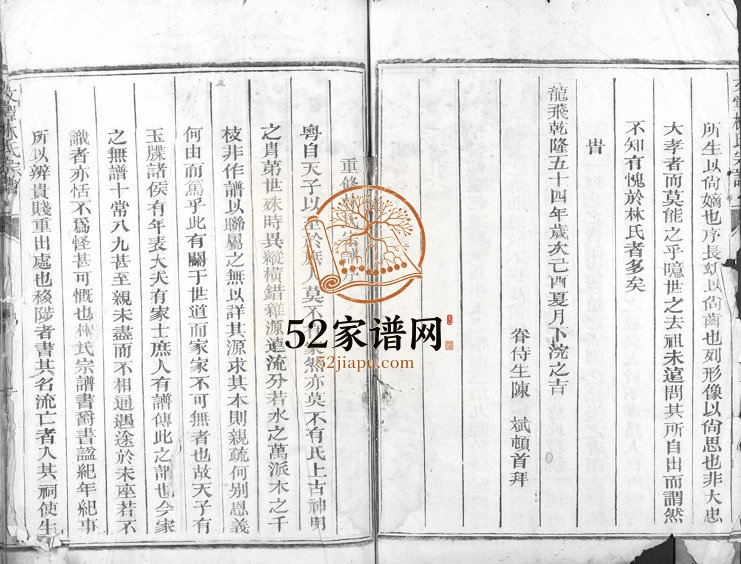 所生以尚嫡也序長幼以尚齒也列形像以尚思也非大忠
大孝者而莫能之乎噫世之去祖未遠問其所自出而謂然
不知有愧於林氏者多矣
旹
龍飛乾隆五十四年歲次己酉夏月下浣之吉
眷侍生陳 斌頓首拜
重修林氏宗譜序
粵自天子以至於庶人莫不有家然亦莫不有氏上古神明
之胄第世殊時異縱橫錯雜源遠流分若水之萬派木之千
枝非作譜以聯屬之無以詳其源求其本則親疏何別恩義
何由而篤乎此有關于世道而家家不可無者也故天子有
玉牒諸侯有年表大夫有家士庶人有譜傳此之謂也今家
之無譜十常八九甚至親未盡而不相通遇途於未座若不
識者亦恬不為怪甚可慨也林氏宗譜書爵書謚紀年紀事
所以辨貴賤重出處也移陟者書其名流亡者入其祠使生
林氏宗譜
52家谱网
52jiapu.com